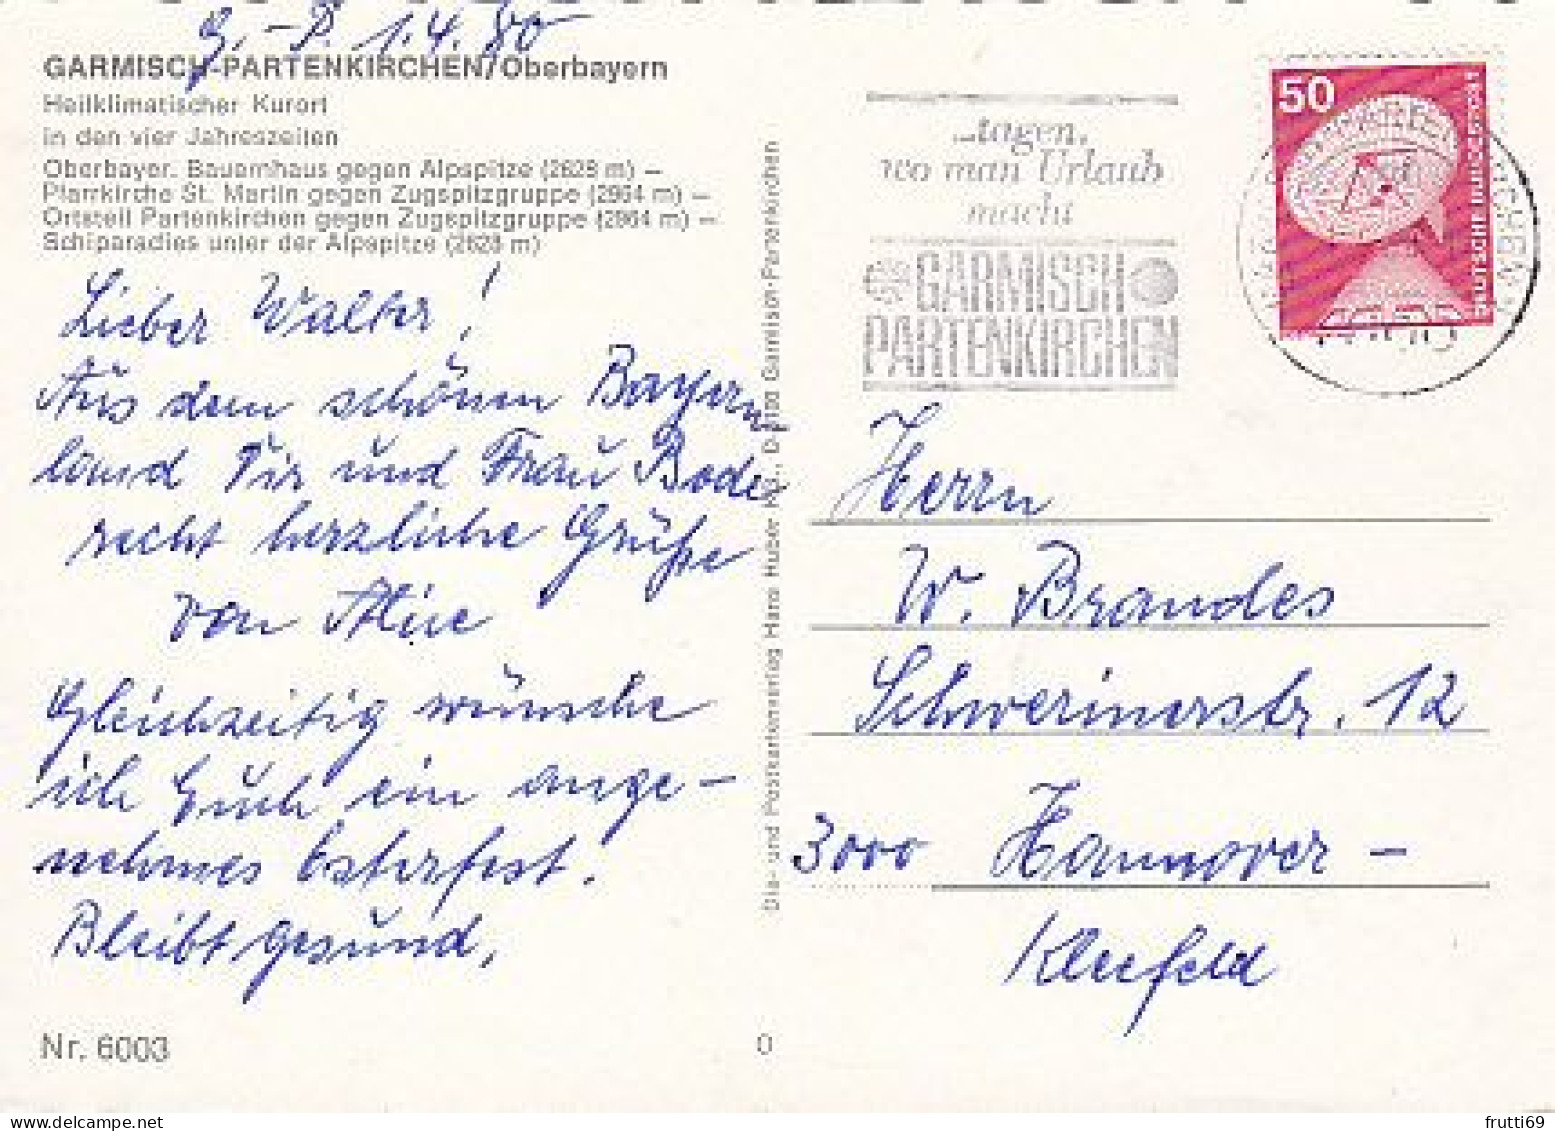 G.-P. 1.4.80
GARMISCH-PARTENKIRCHEN/Oberbayern
Heilklimatischer Kurort
in den vier Jahreszeiten
Oberbayer. Bauernhaus gegen Alpspitze (2628 m) –
Pfarrkirche St. Martin gegen Zugspitzgruppe (2964 m) –
Ortsteil Partenkirchen gegen Zugspitzgruppe (2964 m) –
Schiparadies unter der Alpspitze (2628 m)
Lieber Walter!
Aus dem schönen Bayern
land Dir und Frau Bode
recht herzliche Grüße
von Aline
Gleichzeitig wünsche
ich Euch ein ange-
nehmes Osterfest!
Bleibt gesund,
Nr. 6003
0
Dia- und Postkartenverlag Hans Huber KG., D-8100 Garmisch-Partenkirchen
...tagen,
wo man Urlaub
macht
GARMISCH
PARTENKIRCHEN
50
DEUTSCHE BUNDESPOST
Herrn
W. Brandes
Schwerinerstr. 12
3000 Hannover -
Kleefeld
frutti69